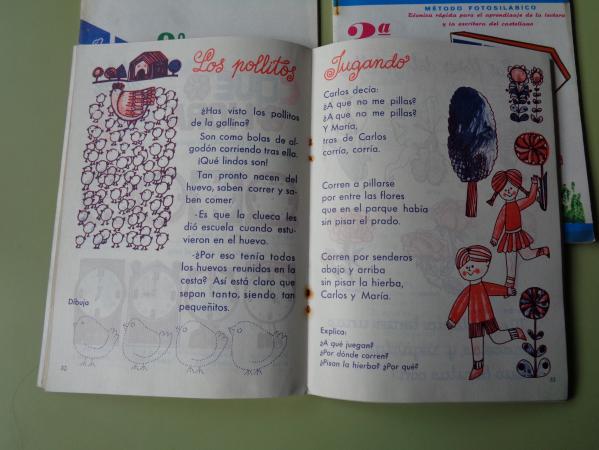 MÉTODO FOTOSILÁBICO
Técnica rápida para el aprendizaje de la lectura
y la escritura del castellano
2ª
Los pollitos
¿Has visto los pollitos
de la gallina?
Son como bolas de al-
godón corriendo tras ella.
¡Qué lindos son!
Tan pronto nacen del
huevo, saben correr y sa-
ben comer.
-Es que la clueca les
dió escuela cuando estu-
vieron en el huevo.
-¿Por eso tenía todos
los huevos reunidos en la
cesta? Así está claro que
sepan tanto, siendo tan
pequeñitos.
Dibuja
52
Jugando
Carlos decía:
¿A que no me pillas?
¿A que no me pillas?
Y María,
tras de Carlos
corría, corría.
Corren a pillarse
por entre las flores
que en el parque había
sin pisar el prado.
Corren por senderos
abajo y arriba
sin pisar la hierba,
Carlos y María.
Explica:
¿A qué juegan?
¿Por dónde corren?
¿Pisan la hierba? ¿Por qué?
53